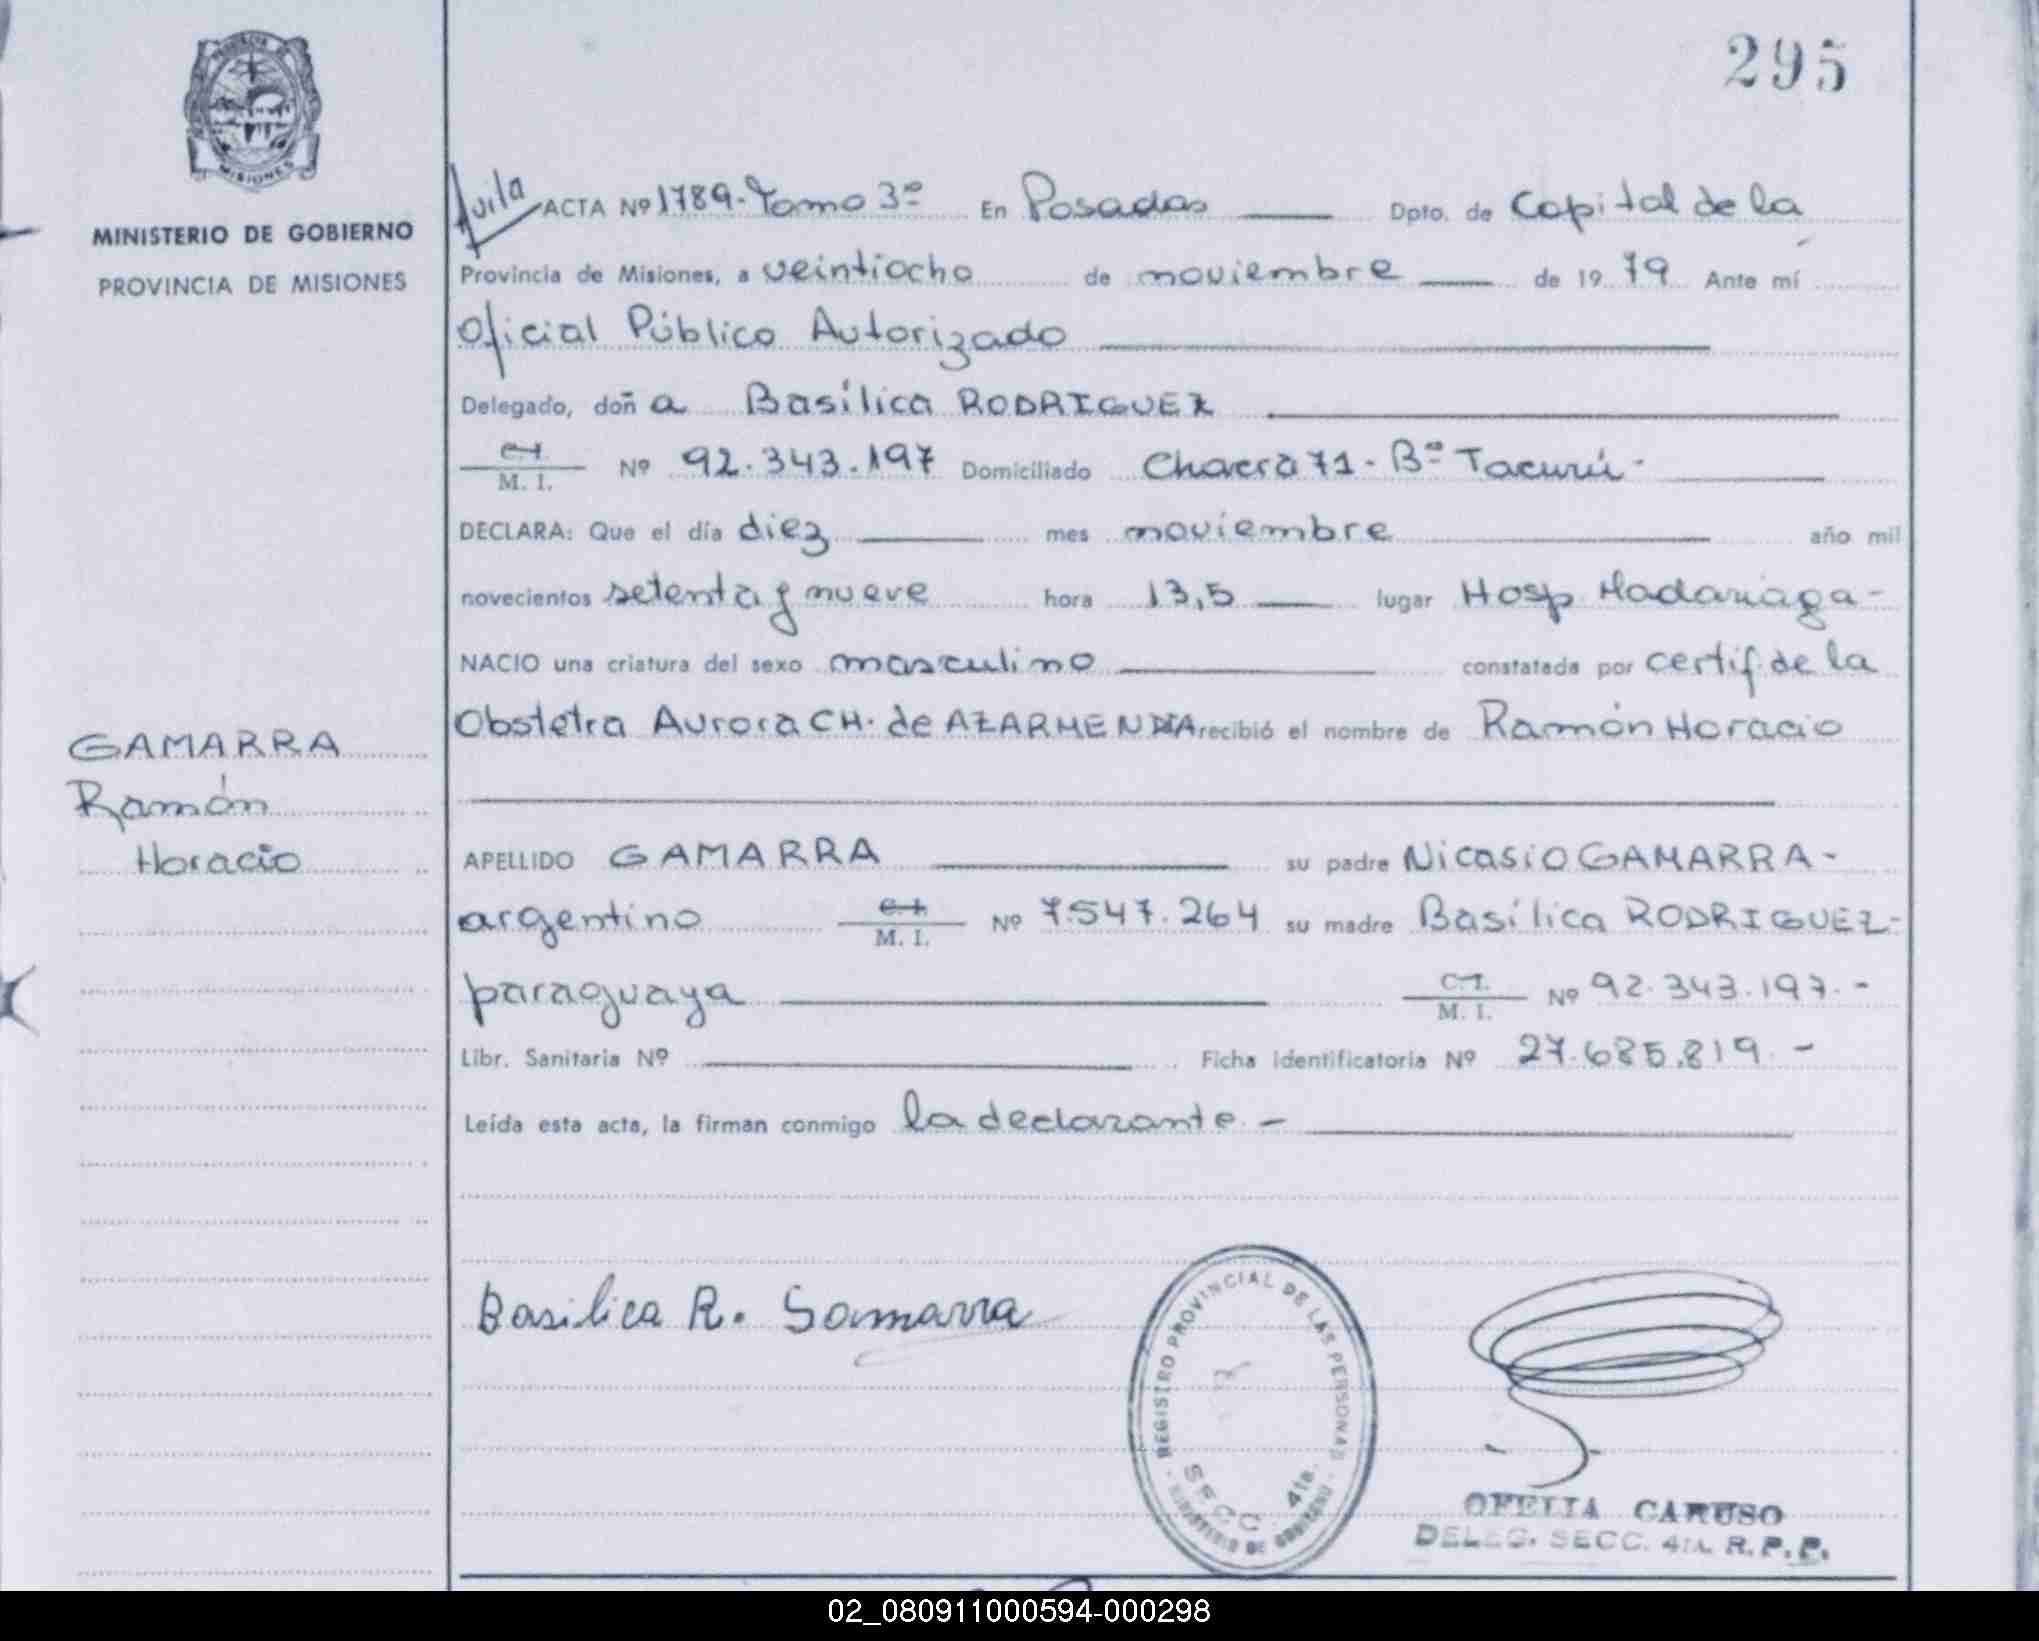 295
PROVINCIA DE
MISIONES
MINISTERIO DE GOBIERNO
PROVINCIA DE MISIONES
GAMARRA
Ramón
Horacio
Avila ACTA Nº 1789- Tomo 3º En Posadas Dpto. de Capital de la
Provincia de Misiones, a veintiocho de noviembre de 19 79 Ante mí
Oficial Público Autorizado
Delegado, doña Basílica RODRIGUEZ
C.I.
M. I. Nº 92.343.197 Domiciliado Chacra 71- Bº Tacurú-
DECLARA: Que el día diez mes noviembre año mil
novecientos setenta y nueve hora 13,5 lugar Hosp Madariaga-
NACIO una criatura del sexo masculino constatada por certif. de la
Obstetra Aurora CH. de AZARMENDIA recibió el nombre de Ramón Horacio
APELLIDO GAMARRA su padre Nicasio GAMARRA-
argentino C.I. M. I. Nº 7.547.264 su madre Basílica RODRIGUEZ-
paraguaya C.I. M. I. Nº 92.343.197.-
Libr. Sanitaria Nº Ficha Identificatoria Nº 27.685.819.-
Leída esta acta, la firman conmigo la declarante.-
Basilica R. Gamarra
REGISTRO PROVINCIAL DE LAS PERSONAS
SECC. 4ta.
MINISTERIO DE GOBIERNO
OFELIA CARUSO
DELEG. SECC. 4TA. R.P.P.
02_080911000594-000298